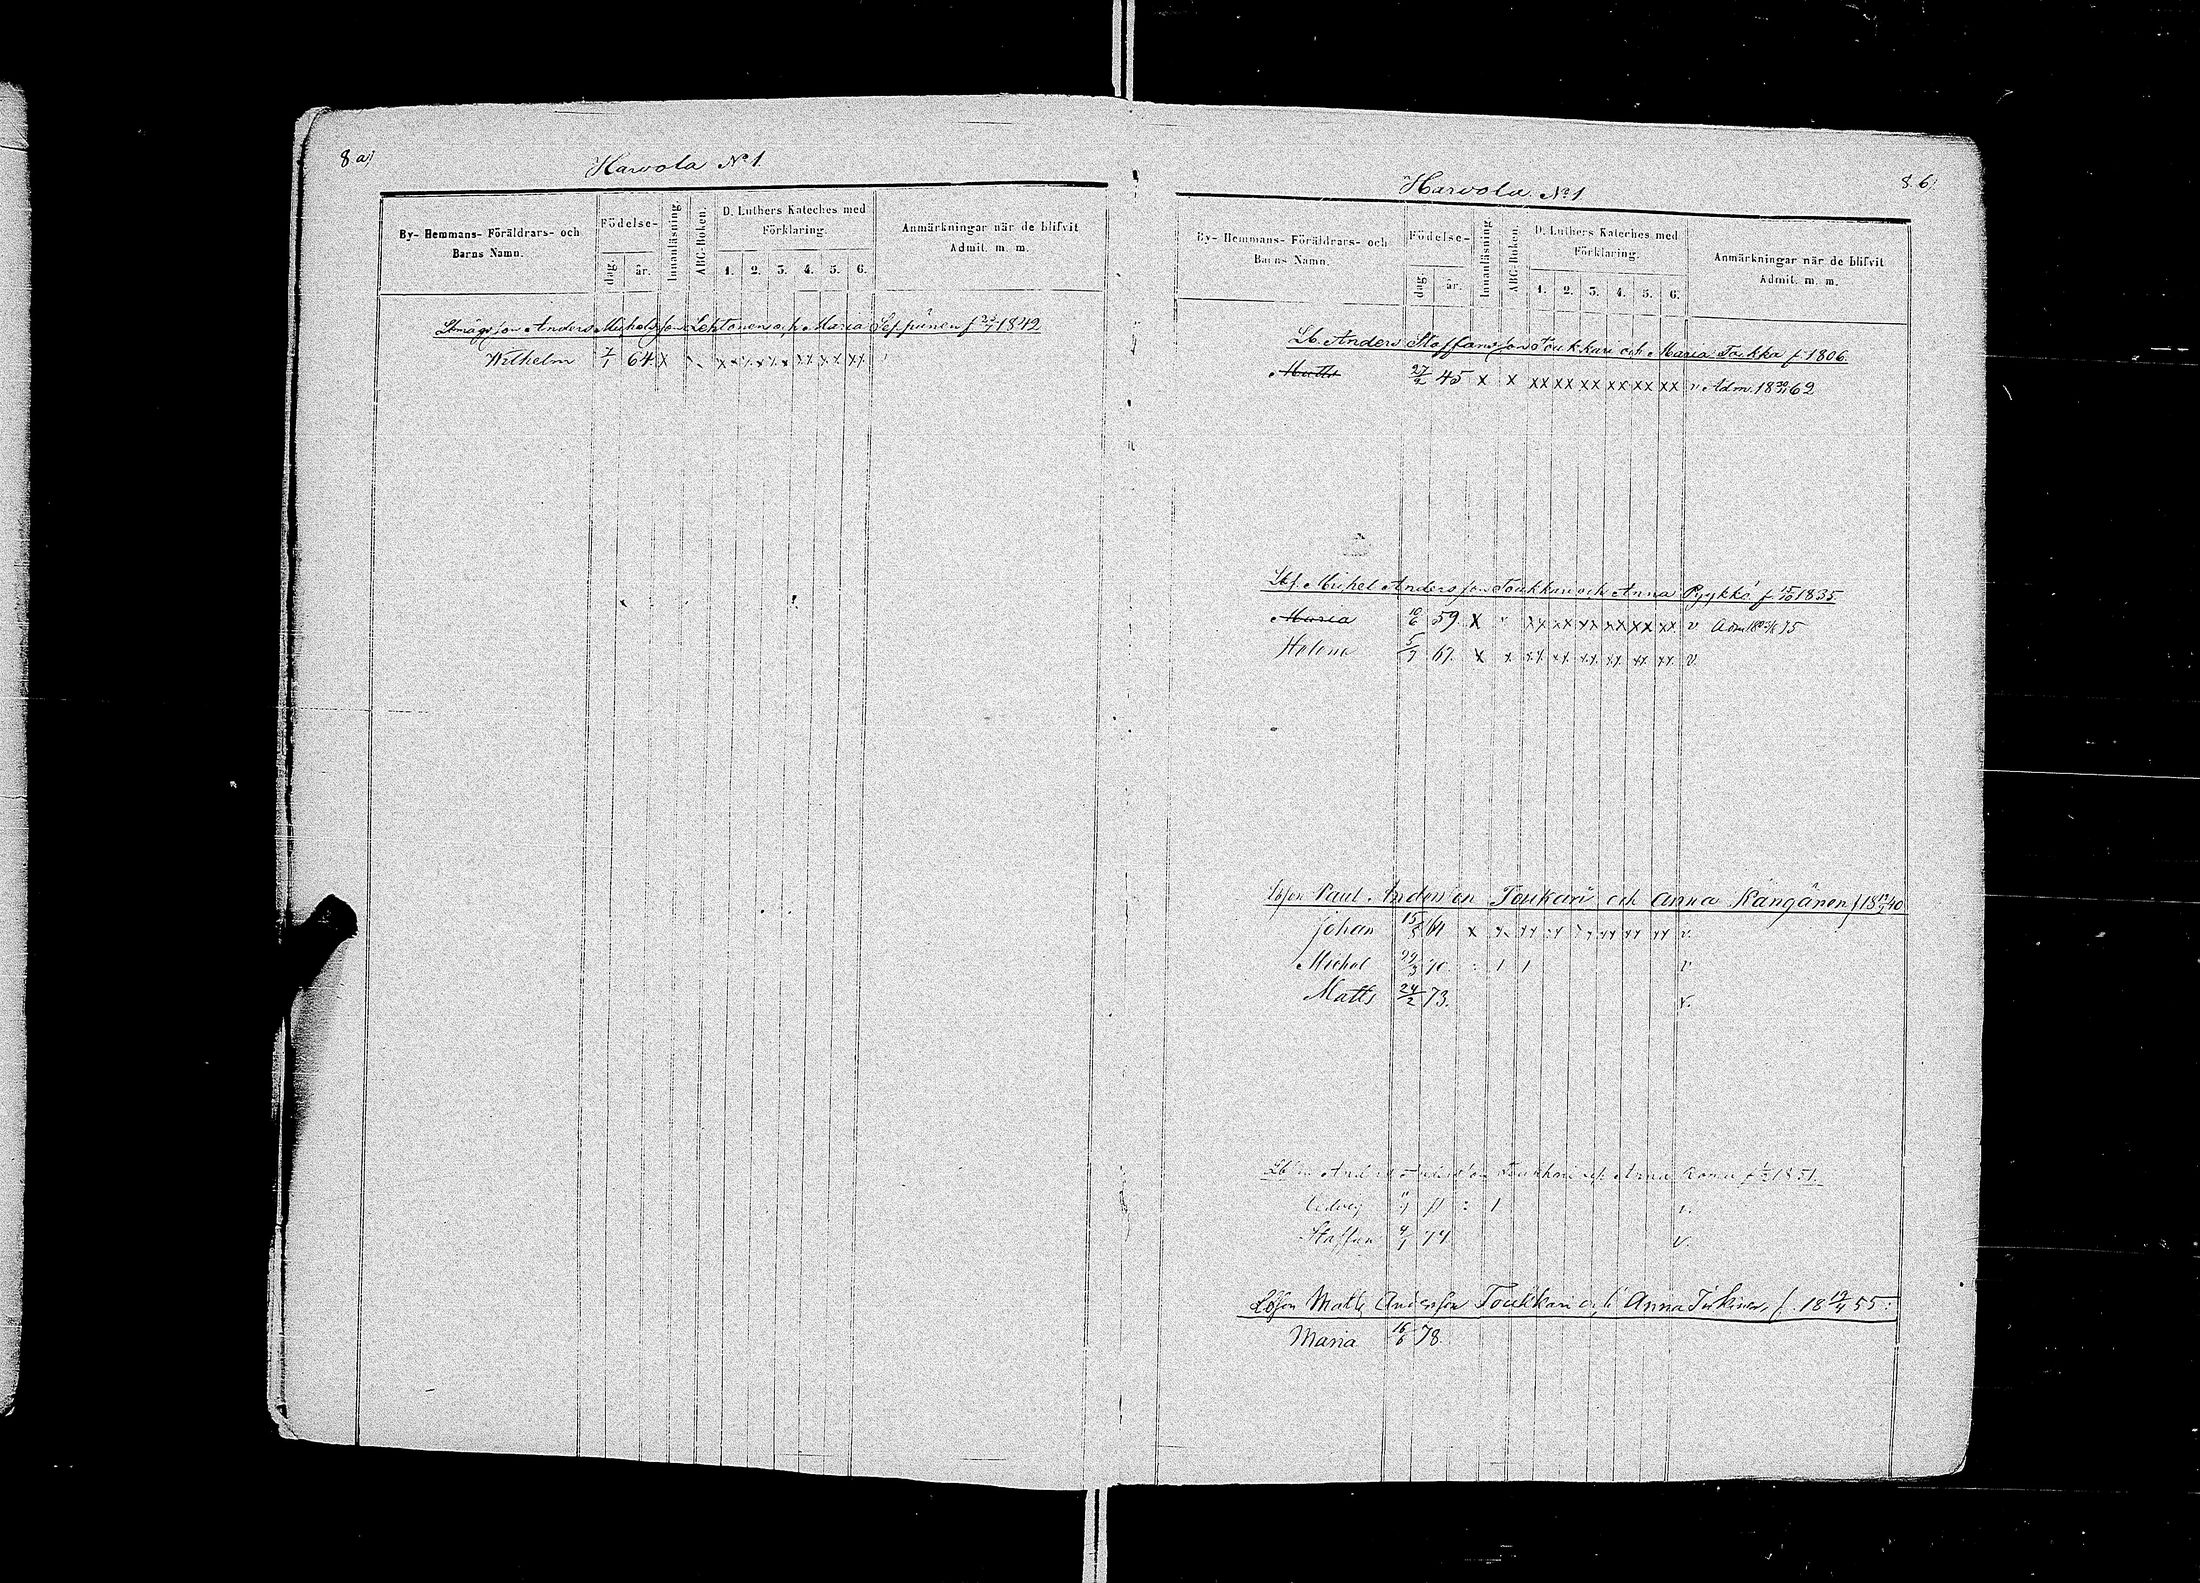 8 a)
Harvola No 1.
By- Hemmans- Föräldrars- och Barns Namn.
Födelse-
dag.
år.
Innanläsning
ABC-Boken.
D. Luthers Kateches med Förklaring.
1. 2. 3. 4. 5. 6.
Anmärkningar när de blifvit Admit. m. m.
Anders Michelsson Lehtonen och Maria Seppänen f 1842
Wilhelm 7/1 64. x xx xx xx xx xx xx
8 b)
Harvola No 1
By- Hemmans- Föräldrars- och Barns Namn.
Födelse-
dag.
år.
Innanläsning
ABC-Boken.
D. Luthers Kateches med Förklaring.
1. 2. 3. 4. 5. 6.
Anmärkningar när de blifvit Admit. m. m.
Lb. Anders Staffansson Toukkari och Maria Toukka f 1806.
Matts 27/2 45 x x xx xx xx xx xx xx v Adm. 18 62
Lbf. Michel Andersson Toukkari och Anna Pyykkö f 15/10 1835
Maria 10/6 59. x " xx xx xx xx xx xx v Adm 75
Helena 5/7 67. x x xx xx xx xx xx xx v.
Lbson Paul Andersson Toukari och Anna Kängänen f 18 40
Johan 15/5 64 x x xx xx xx xx xx xx v.
Michel 29/3 70. : 1 1 v
Matts 24/2 73. v.
Anders Andersson Toukkari och Anna f 1851.
: 1 v.
Staffan 4/1 74. v.
Lbson Matts Andersson Toukkari och Anna Turkinen f. 18 19/4 55:
Maria 16/6 78.